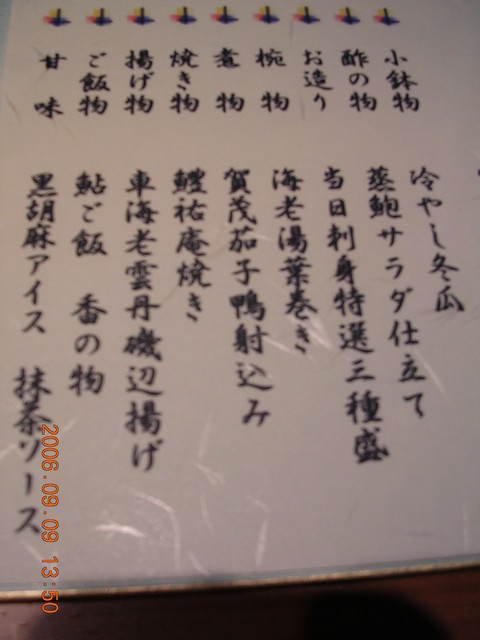 小鉢物 冷やし冬瓜
酢の物 蒸鮑サラダ仕立て
お造り 当日刺身特選三種盛
椀物 海老湯葉巻き
煮物 賀茂茄子鴨射込み
焼き物 鱧祐庵焼き
揚げ物 車海老雲丹磯辺揚げ
ご飯物 鮎ご飯 香の物
甘味 黒胡麻アイス 抹茶ソース
2006.09.09 13:50